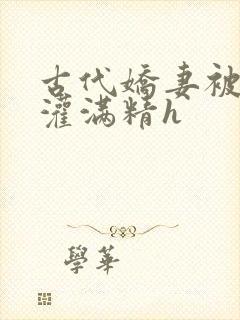 古代嬌妻被
灌滿精h
學華